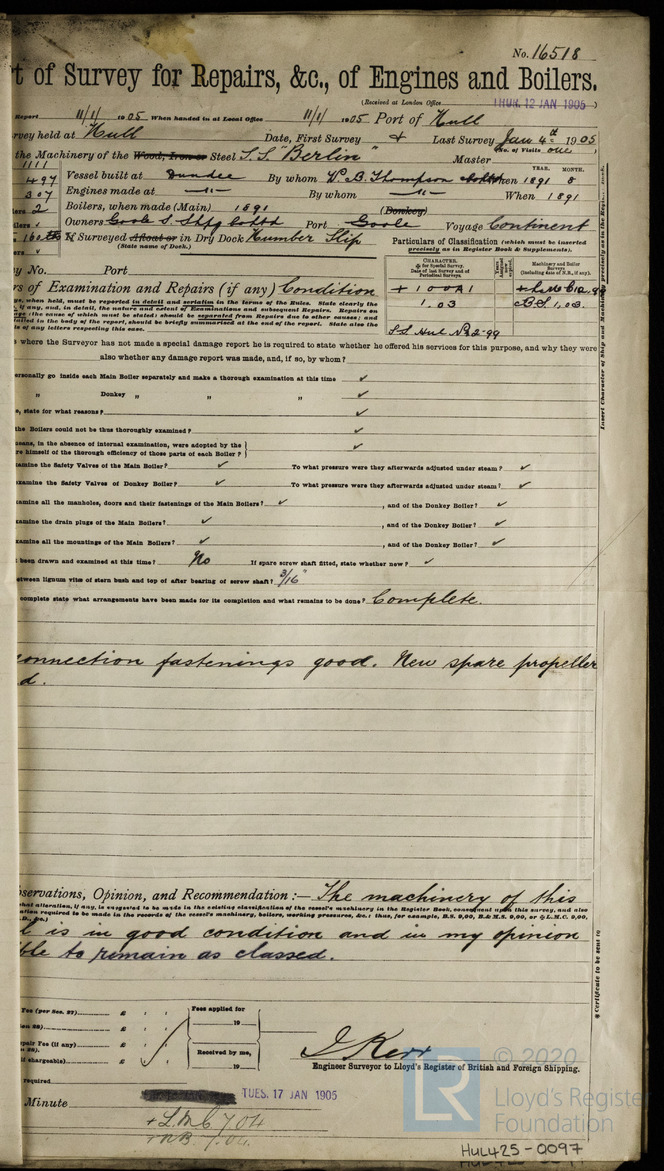 No. 16518
t of Survey for Repairs, &c., of Engines and Boilers.
(Received at London Office THUR. 12 JAN 1905)
Report 11/1/ 1905 When handed in at Local Office 11/1/ 1905 Port of Hull
rvey held at Hull Date, First Survey Last Survey Jan 4th 1905
No. of Visits one
the Machinery of the Wood, Iron or Steel S.S. "Berlin" Master
1111
497 Vessel built at Dundee By whom W. B. Thompson When 1891 8
YEAR. MONTH.
307 Engines made at —"— By whom —"— When 1891
lers 2 Boilers, when made (Main) 1891 (Donkey)
Owners Goole S. Shpg Co Ltd Port Goole Voyage Continent
160 If Surveyed Afloat or in Dry Dock Humber Slip
(State name of Dock.)
Particulars of Classification (which must be inserted precisely as in the Register Book & Supplements).
y No. Port
CHARACTER.
for Special Survey.
Date of last Survey and of Periodical Surveys.
Machinery and Boiler Surveys
(including date of N.B., if any).
rs of Examination and Repairs (if any) Condition
+ 100A1
1.03
B.S. 1,03.
ys, when held, must be reported in detail and seriatim in the terms of the Rules. State clearly the
, if any, and, in detail, the nature and extent of Examinations and subsequent Repairs. Repairs on
age (the cause of which must be stated) should be separated from Repairs due to other causes; and
tailed in the body of the report, should be briefly summarised at the end of the report. State also the
s of any letters respecting this case.
S.S. Hul No 2-99
where the Surveyor has not made a special damage report he is required to state whether he offered his services for this purpose, and why they were
also whether any damage report was made, and, if so, by whom?
ersonally go inside each Main Boiler separately and make a thorough examination at this time ✓
" Donkey " " " ✓
e, state for what reasons? ✓
the Boilers could not be thoroughly examined? ✓
eans, in the absence of internal examination, were adopted by the
re himself of the thorough efficiency of those parts of each Boiler? ✓
amine the Safety Valves of the Main Boiler? ✓ To what pressure were they afterwards adjusted under steam? ✓
examine the Safety Valves of Donkey Boiler? ✓ To what pressure were they afterwards adjusted under steam? ✓
xamine all the manholes, doors and their fastenings of the Main Boilers? ✓ , and of the Donkey Boiler? ✓
xamine the drain plugs of the Main Boilers? ✓ , and of the Donkey Boiler? ✓
xamine all the mountings of the Main Boilers? ✓ , and of the Donkey Boiler? ✓
been drawn and examined at this time? No If spare screw shaft fitted, state whether new? ✓
etween lignum vitæ of stern bush and top of after bearing of screw shaft? 3/16"
complete state what arrangements have been made for its completion and what remains to be done? Complete.
onnection fastenings good. New spare propeller
d.
bservations, Opinion, and Recommendation :— The machinery of this
hat alteration, if any, is suggested to be made in the existing classification of the vessel's machinery in the Register Book, consequent upon this survey, and also
ation required to be made in the records of the vessel's machinery, boilers, working pressures, &c.: thus, for example, B.S. 9,00, B.& M.S. 9,00, or L.M.C. 9,00,
l is in good condition and in my opinion
ble to remain as classed.
Fee (per Sec. 27) £
£
epair Fee (if any) £
if chargeable) £
required
Fees applied for
19
Received by me,
19
J Kerr
Engineer Surveyor to Lloyd's Register of British and Foreign Shipping.
Minute TUES. 17 JAN 1905
+ L.M.C 7,04
+ N.B. 7.04.
Certificate to be sent to
LR
© 2020
Lloyd's Register
Foundation
HUL425-0097